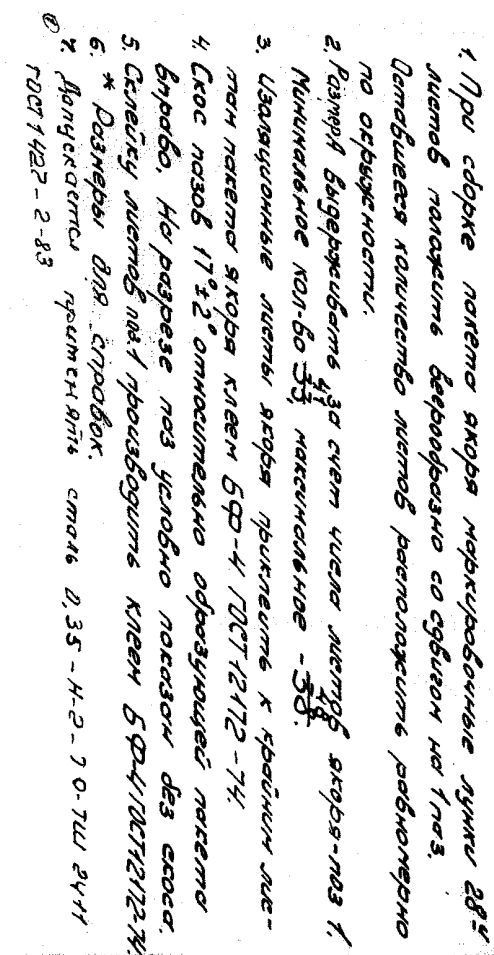 1. При сборке пакета якоря маркировочные лунки 28-и
листов положить веерообразно со сдвигом на 1 паз.
Оставшееся количество листов расположить равномерно
по окружности.
2. Размер А выдерживать за счет числа листов якоря-поз 1.
Минимальное кол-во 41, максимальное - 48.
3. Изоляционные листы якоря приклеить к крайним лис-
там пакета якоря клеем БФ-4 ГОСТ 12172-74.
4. Скос пазов 17°±2° относительно образующей пакета
вправо. На разрезе паз условно показан без скоса.
5. Склейку листов поз 1 производить клеем БФ-4 ГОСТ 12172-74.
6. * Размеры для справок.
7. Допускается применять сталь 0,35-Н-2- -ТШ 2411
ГОСТ 1427-2-83